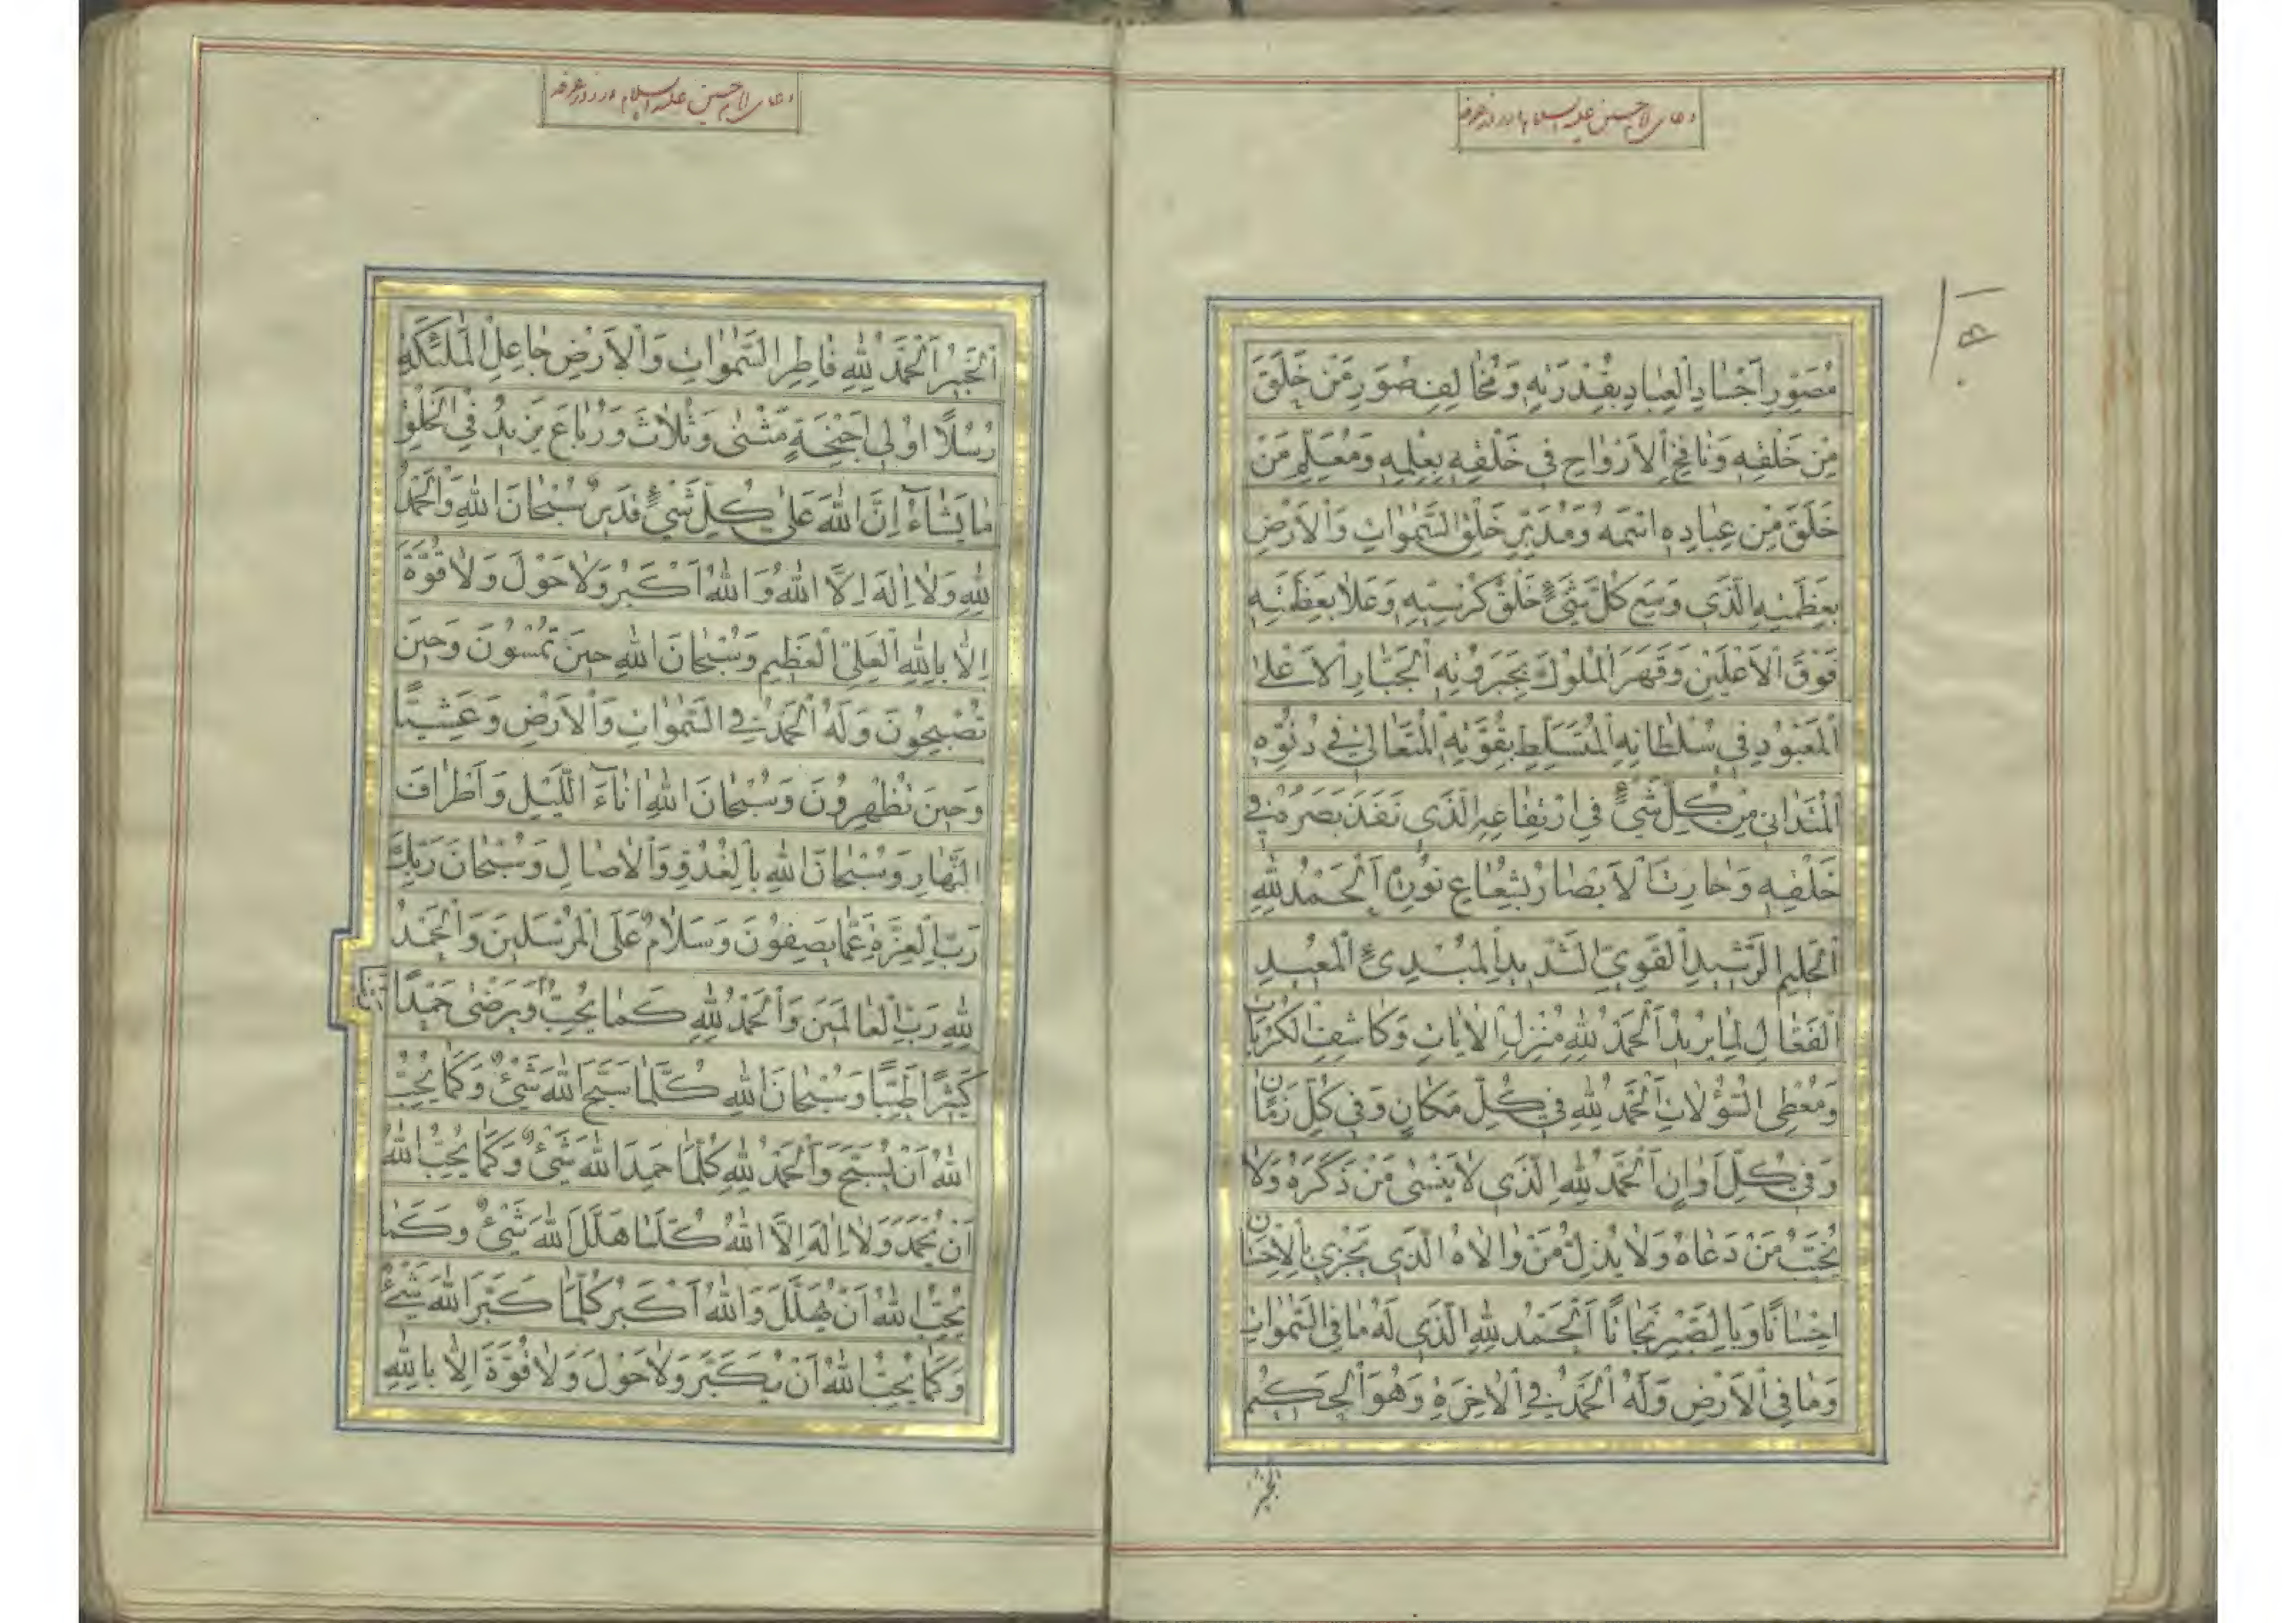 دعای امام حسین علیه السلام در روز عرفه
مُصَوِّرِ اَجْسَادِ الْعِبَادِ بِقُدْرَتِهِ وَمُخَالِفِ صُوَرِ مَنْ خَلَقَ
مِنْ خَلْقِهِ وَنَافِخِ الْاَرْوَاحِ فِي خَلْقِهِ بِعِلْمِهِ وَمُعَلِّمِ مَنْ
خَلَقَ مِنْ عِبَادِهِ اسْمَهُ وَمُدَبِّرِ خَلْقِ السَّمٰوَاتِ وَالْاَرْضِ
بِعَظَمَتِهِ الَّذِي وَسِعَ كُلَّ شَيْءٍ خَلْقُ كُرْسِيِّهِ وَعَلَا بِعَظَمَتِهِ
فَوْقَ الْاَعْلَيْنَ وَقَهَرَ الْمُلُوكَ بِجَبَرُوتِهِ الْجَبَّارِ الْاَعْلٰى
الْمَعْبُودِ فِي سُلْطَانِهِ الْمُتَسَلِّطِ بِقُوَّتِهِ الْمُتَعَالِي فِي دُنُوِّهِ
الْمُتَدَانِي مِنْ كُلِّ شَيْءٍ فِي ارْتِفَاعِهِ الَّذِي نَفَذَ بَصَرُهُ فِي
خَلْقِهِ وَحَارَتِ الْاَبْصَارُ بِشُعَاعِ نُورِهِ اَلْحَمْدُ لِلّٰهِ
الْحَلِيمِ الرَّشِيدِ الْقَوِيِّ الشَّدِيدِ الْمُبْدِئِ الْمُعِيدِ
الْفَعَّالِ لِمَا يُرِيدُ اَلْحَمْدُ لِلّٰهِ مُنْزِلِ الْاٰيَاتِ وَكَاشِفِ الْكُرُبَاتِ
وَمُعْطِي السُّؤُلَاتِ اَلْحَمْدُ لِلّٰهِ فِي كُلِّ مَكَانٍ وَفِي كُلِّ زَمَانٍ
وَفِي كُلِّ اَوَانٍ اَلْحَمْدُ لِلّٰهِ الَّذِي لَا يَنْسٰى مَنْ ذَكَرَهُ وَلَا
يُخَيِّبُ مَنْ دَعَاهُ وَلَا يُذِلُّ مَنْ وَالَاهُ الَّذِي يَجْزِي بِالْاِحْسَانِ
اِحْسَانًا وَبِالصَّبْرِ نَجَاتًا اَلْحَمْدُ لِلّٰهِ الَّذِي لَهُ مَا فِي السَّمٰوَاتِ
وَمَا فِي الْاَرْضِ وَلَهُ الْحَمْدُ فِي الْاٰخِرَةِ وَهُوَ الْحَكِيمُ
الخبير
دعای امام حسین علیه السلام در روز عرفه
الْخَبِيرُ اَلْحَمْدُ لِلّٰهِ فَاطِرِ السَّمٰوَاتِ وَالْاَرْضِ جَاعِلِ الْمَلٰئِكَةِ
رُسُلًا اُولِي اَجْنِحَةٍ مَثْنٰى وَثُلَاثَ وَرُبَاعَ يَزِيدُ فِي الْخَلْقِ
مَا يَشَاءُ اِنَّ اللّٰهَ عَلٰى كُلِّ شَيْءٍ قَدِيرٌ سُبْحَانَ اللّٰهِ وَالْحَمْدُ
لِلّٰهِ وَلَا اِلٰهَ اِلَّا اللّٰهُ وَاللّٰهُ اَكْبَرُ وَلَا حَوْلَ وَلَا قُوَّةَ
اِلَّا بِاللّٰهِ الْعَلِيِّ الْعَظِيمِ وَسُبْحَانَ اللّٰهِ حِينَ تُمْسُونَ وَحِينَ
تُصْبِحُونَ وَلَهُ الْحَمْدُ فِي السَّمٰوَاتِ وَالْاَرْضِ وَعَشِيًّا
وَحِينَ تُظْهِرُونَ وَسُبْحَانَ اللّٰهِ اٰنَاءَ اللَّيْلِ وَاَطْرَافَ
النَّهَارِ وَسُبْحَانَ اللّٰهِ بِالْغُدُوِّ وَالْاٰصَالِ وَسُبْحَانَ رَبِّكَ
رَبِّ الْعِزَّةِ عَمَّا يَصِفُونَ وَسَلَامٌ عَلَى الْمُرْسَلِينَ وَالْحَمْدُ
لِلّٰهِ رَبِّ الْعَالَمِينَ وَالْحَمْدُ لِلّٰهِ كَمَا يُحِبُّ وَيَرْضٰى حَمْدًا
كَثِيرًا طَيِّبًا وَسُبْحَانَ اللّٰهِ كُلَّمَا سَبَّحَ اللّٰهَ شَيْءٌ وَكَمَا يُحِبُّ
اللّٰهُ اَنْ يُسَبَّحَ وَالْحَمْدُ لِلّٰهِ كُلَّمَا حَمِدَ اللّٰهَ شَيْءٌ وَكَمَا يُحِبُّ اللّٰهُ
اَنْ يُحْمَدَ وَلَا اِلٰهَ اِلَّا اللّٰهُ كُلَّمَا هَلَّلَ اللّٰهَ شَيْءٌ وَكَمَا
يُحِبُّ اللّٰهُ اَنْ يُهَلَّلَ وَاللّٰهُ اَكْبَرُ كُلَّمَا كَبَّرَ اللّٰهَ شَيْءٌ
وَكَمَا يُحِبُّ اللّٰهُ اَنْ يُكَبَّرَ وَلَا حَوْلَ وَلَا قُوَّةَ اِلَّا بِاللّٰهِ